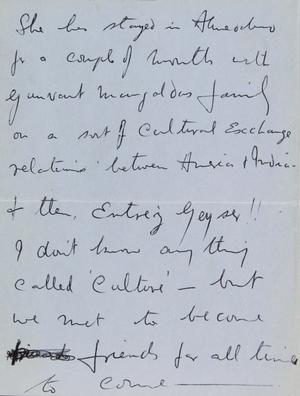 She has stayed in Ahmedabad
for a couple of months with
Gunvant Mangaldas family
on a sort of Cultural Exchange
relations between America & India -
& then, Geyser!!
I don't know anything
called 'Culture' – but
we met to become
friends for all time
to come